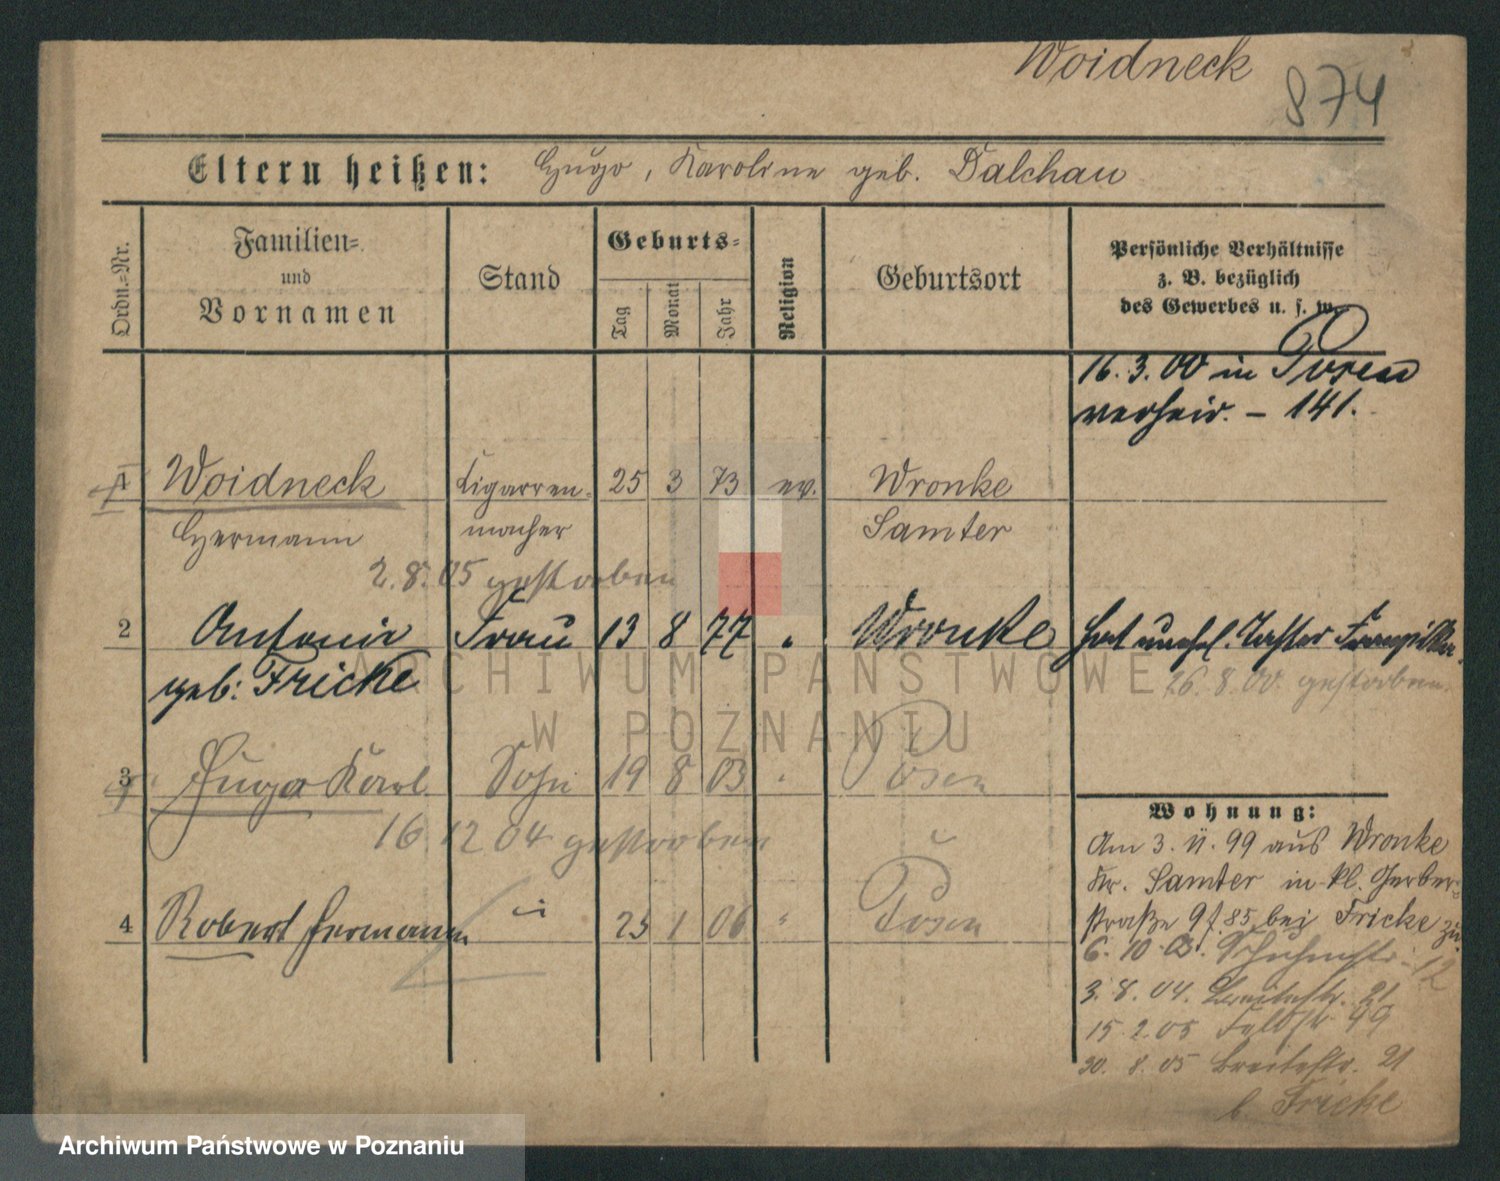 Woidneck
874
Eltern heißen: Hugo, Karoline geb. Dalchau
Ordn.-Nr.
Familien-
und
Vornamen
Stand
Geburts-
Tag
Monat
Jahr
Religion
Geburtsort
Persönliche Verhältnisse
z. B. bezüglich
des Gewerbes u. s. w.
16. 3. 00 in Posen
verheir. - 141.
1 Woidneck Cigarren- 25 3 73 ev. Wronke
Hermann macher Samter
2. 8. 05 gestorben
2 Antonie Frau 13 8 77 " Wronke hat unehl. Tochter
geb: Fricke 26. 8. 00 gestorben.
3 Hugo Karl Sohn 19 8 03 " Posen
16 12 04 gestorben
4 Robert Hermann 25 1 06 " Posen
Wohnung:
Am 3. 11. 99 aus Wronke
Kr. Samter in kl. Gerber-
straße 9 bei Fricke zu
6. 10. 03. 12
3. 8. 04. Breitestr. 21
15. 2. 05 Feldstr 99
30. 8. 05 Breitestr. 21
b. Fricke
ARCHIWUM PAŃSTWOWE
W POZNANIU
Archiwum Państwowe w Poznaniu